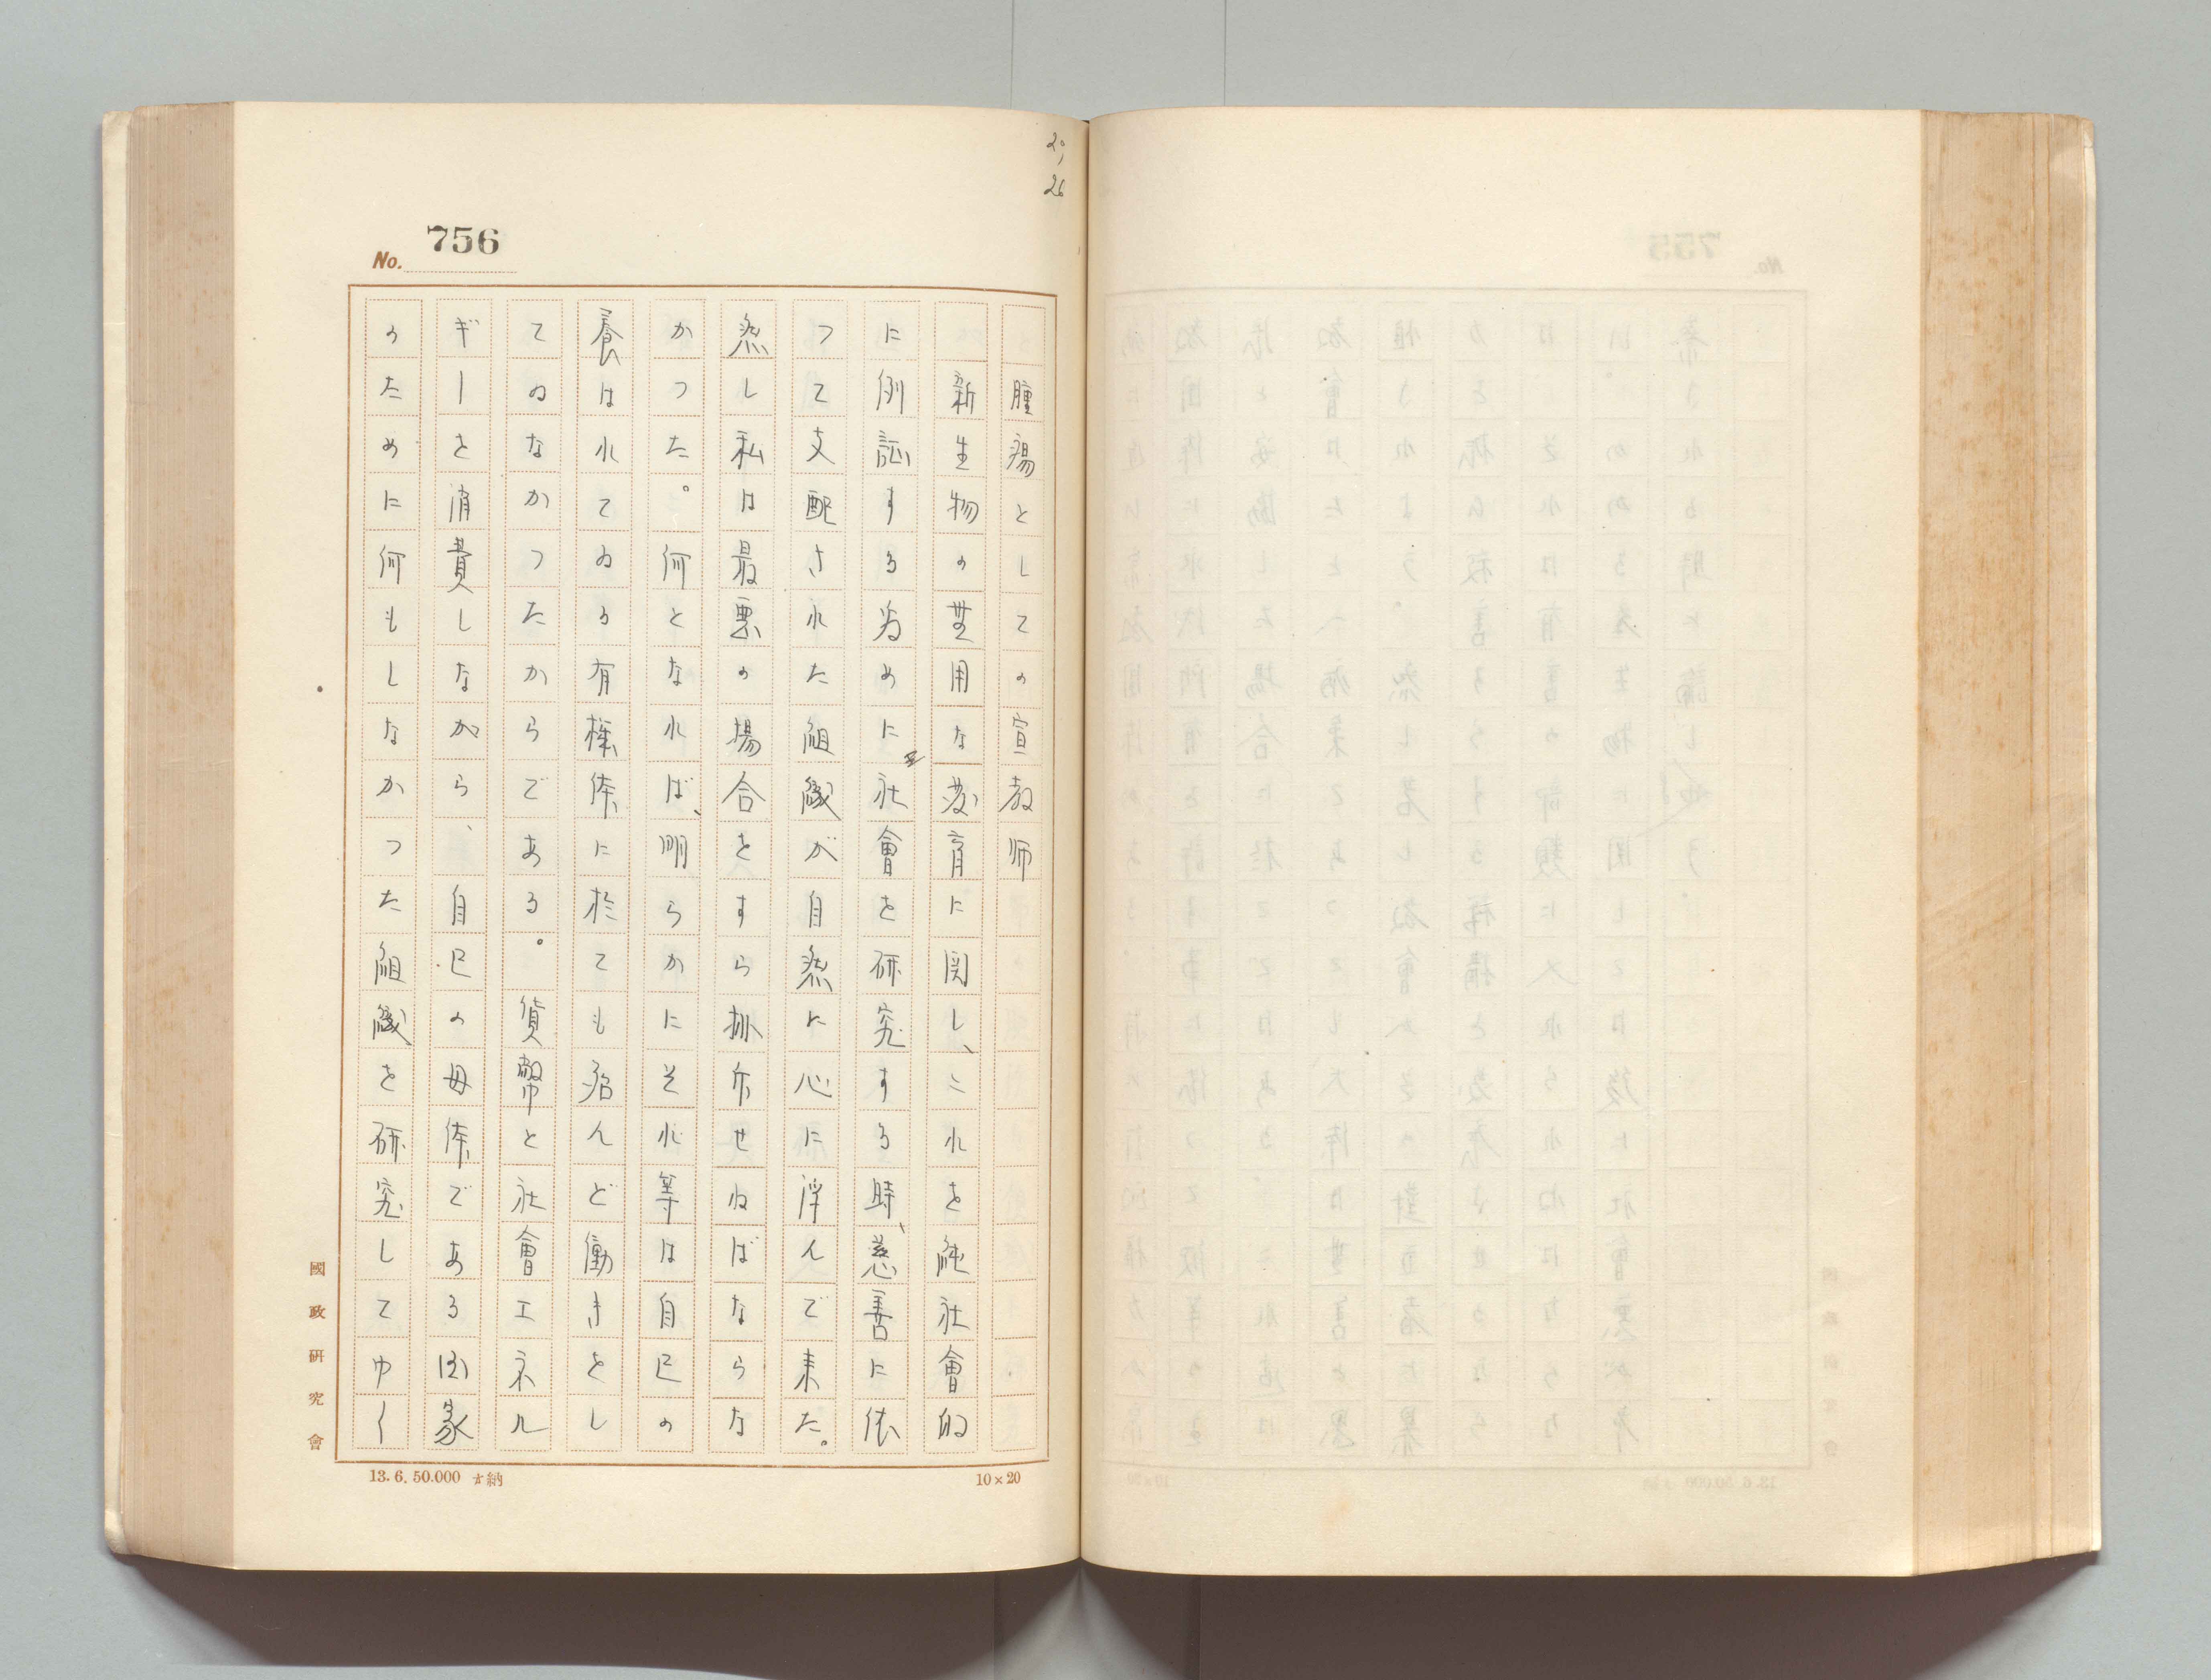 20,
26
No. 756
腫瘍としての宣教師
新生物の無用な発育に関し、これを純社會的
に例証する為めに社會を研究する時、慈善に依
つて支配された組織が自然と心に浮んで来た。
然し私は最悪の場合をすらせねばならな
かつた。何となれば、明らかにそれ等は自己の
養はれてゐる有機体に於ても殆んど働きをし
てゐなかつたからである。貨幣と社會エネル
ギーを消費しながら、自己の母体である国家
のために何もしなかつた組織を研究してゆく
國政研究會
13.6.50.000 納
10×20